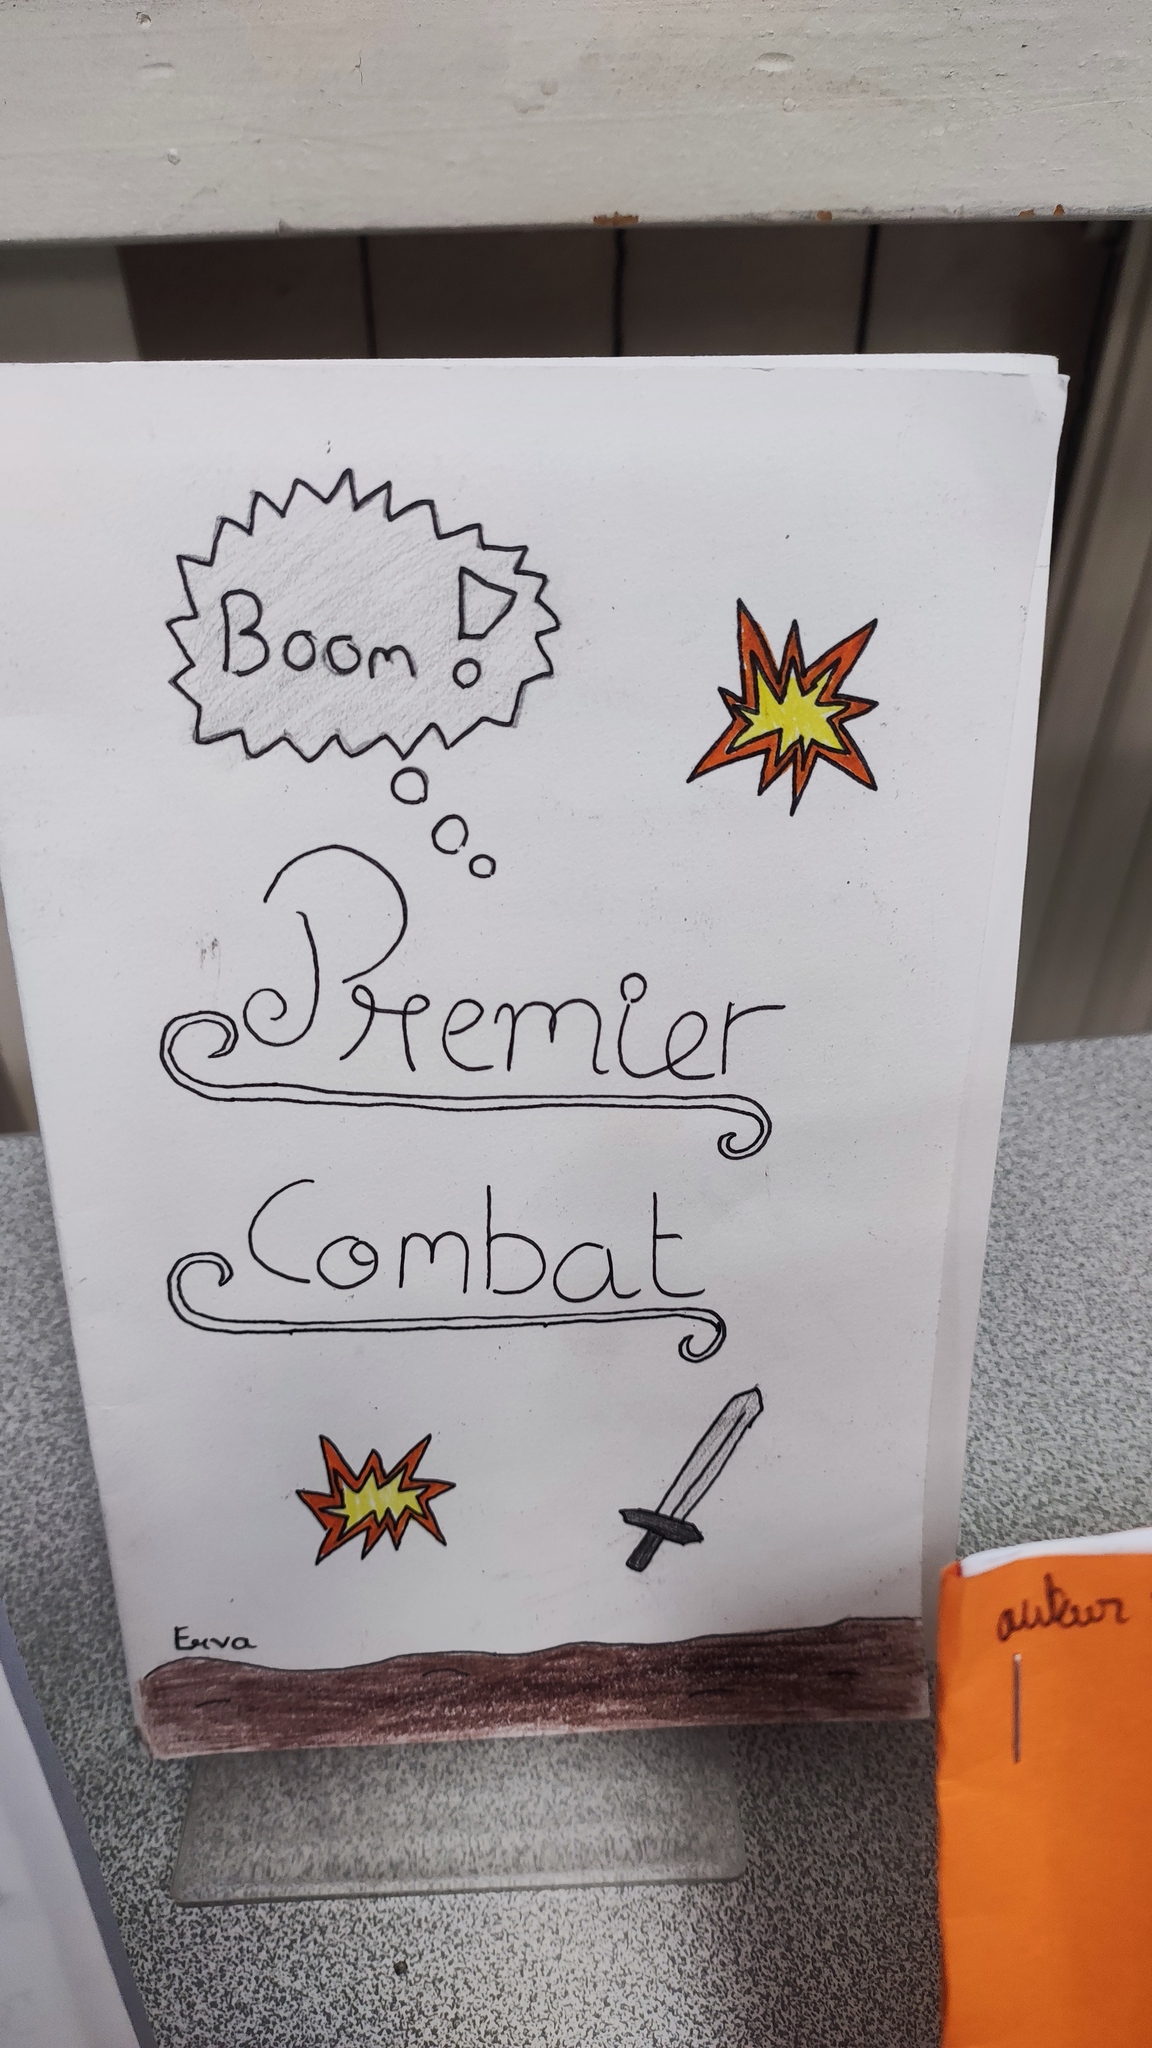 Boom !
Premier
Combat
Erva
auteur